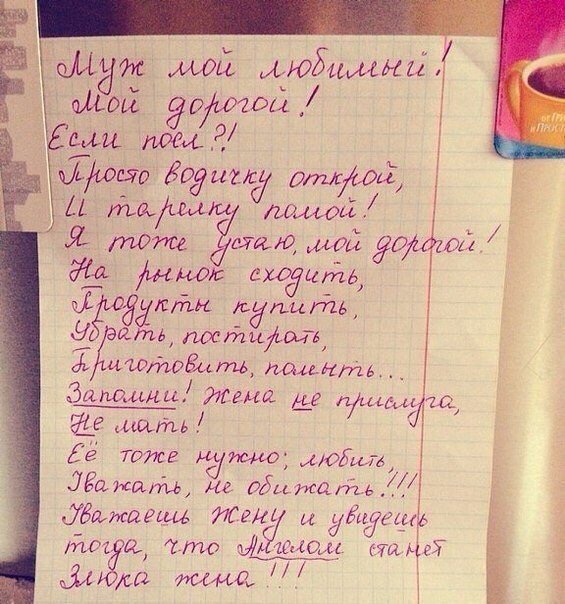 Муж мой любимый!
Мой дорогой!
Если поел?!
Просто водичку открой,
И тарелку помой!
Я тоже устаю, мой дорогой!
На рынок сходить,
Продукты купить,
Убрать, постирать,
Приготовить, помыть...
Запомни! Жена не прислуга,
Не мать!
Её тоже нужно; любить,
Уважать, не обижать!!!
Уважаешь жену и увидешь
тогда, что Ангелом станет
Злюка жена!!!